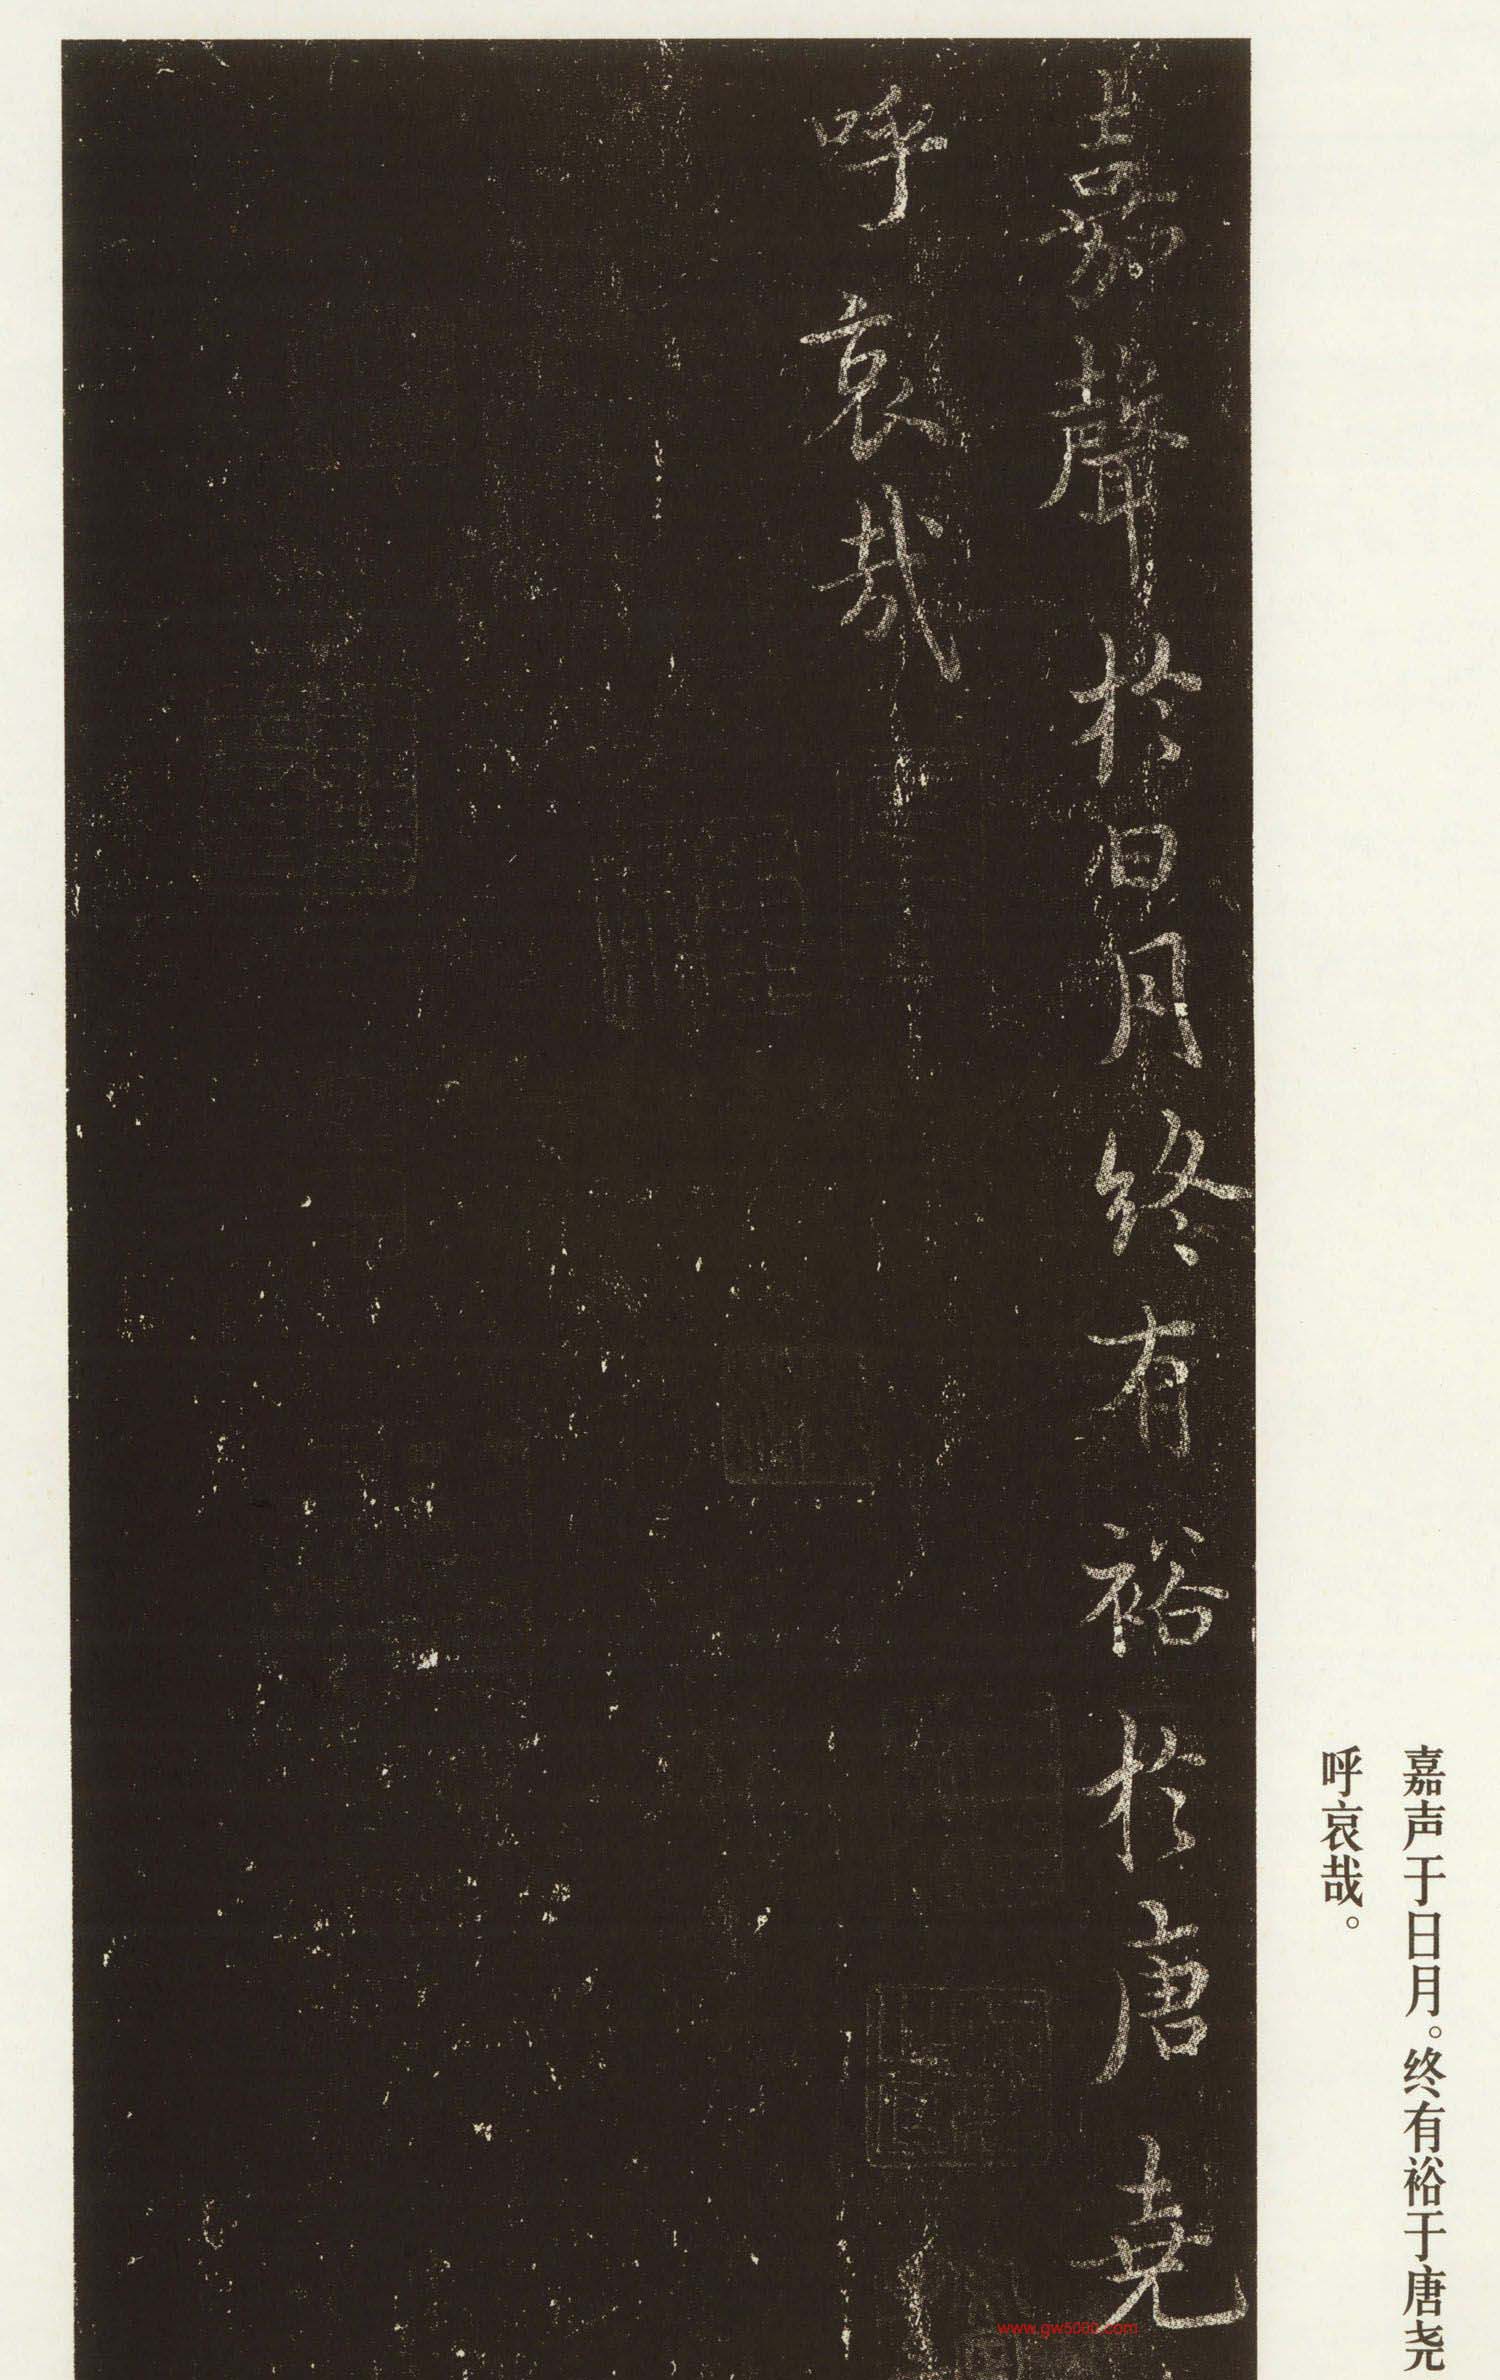 嘉聲於日月終有裕於唐堯
呼哀哉
嘉声于日月。终有裕于唐尧
呼哀哉。
www.gw5000.com